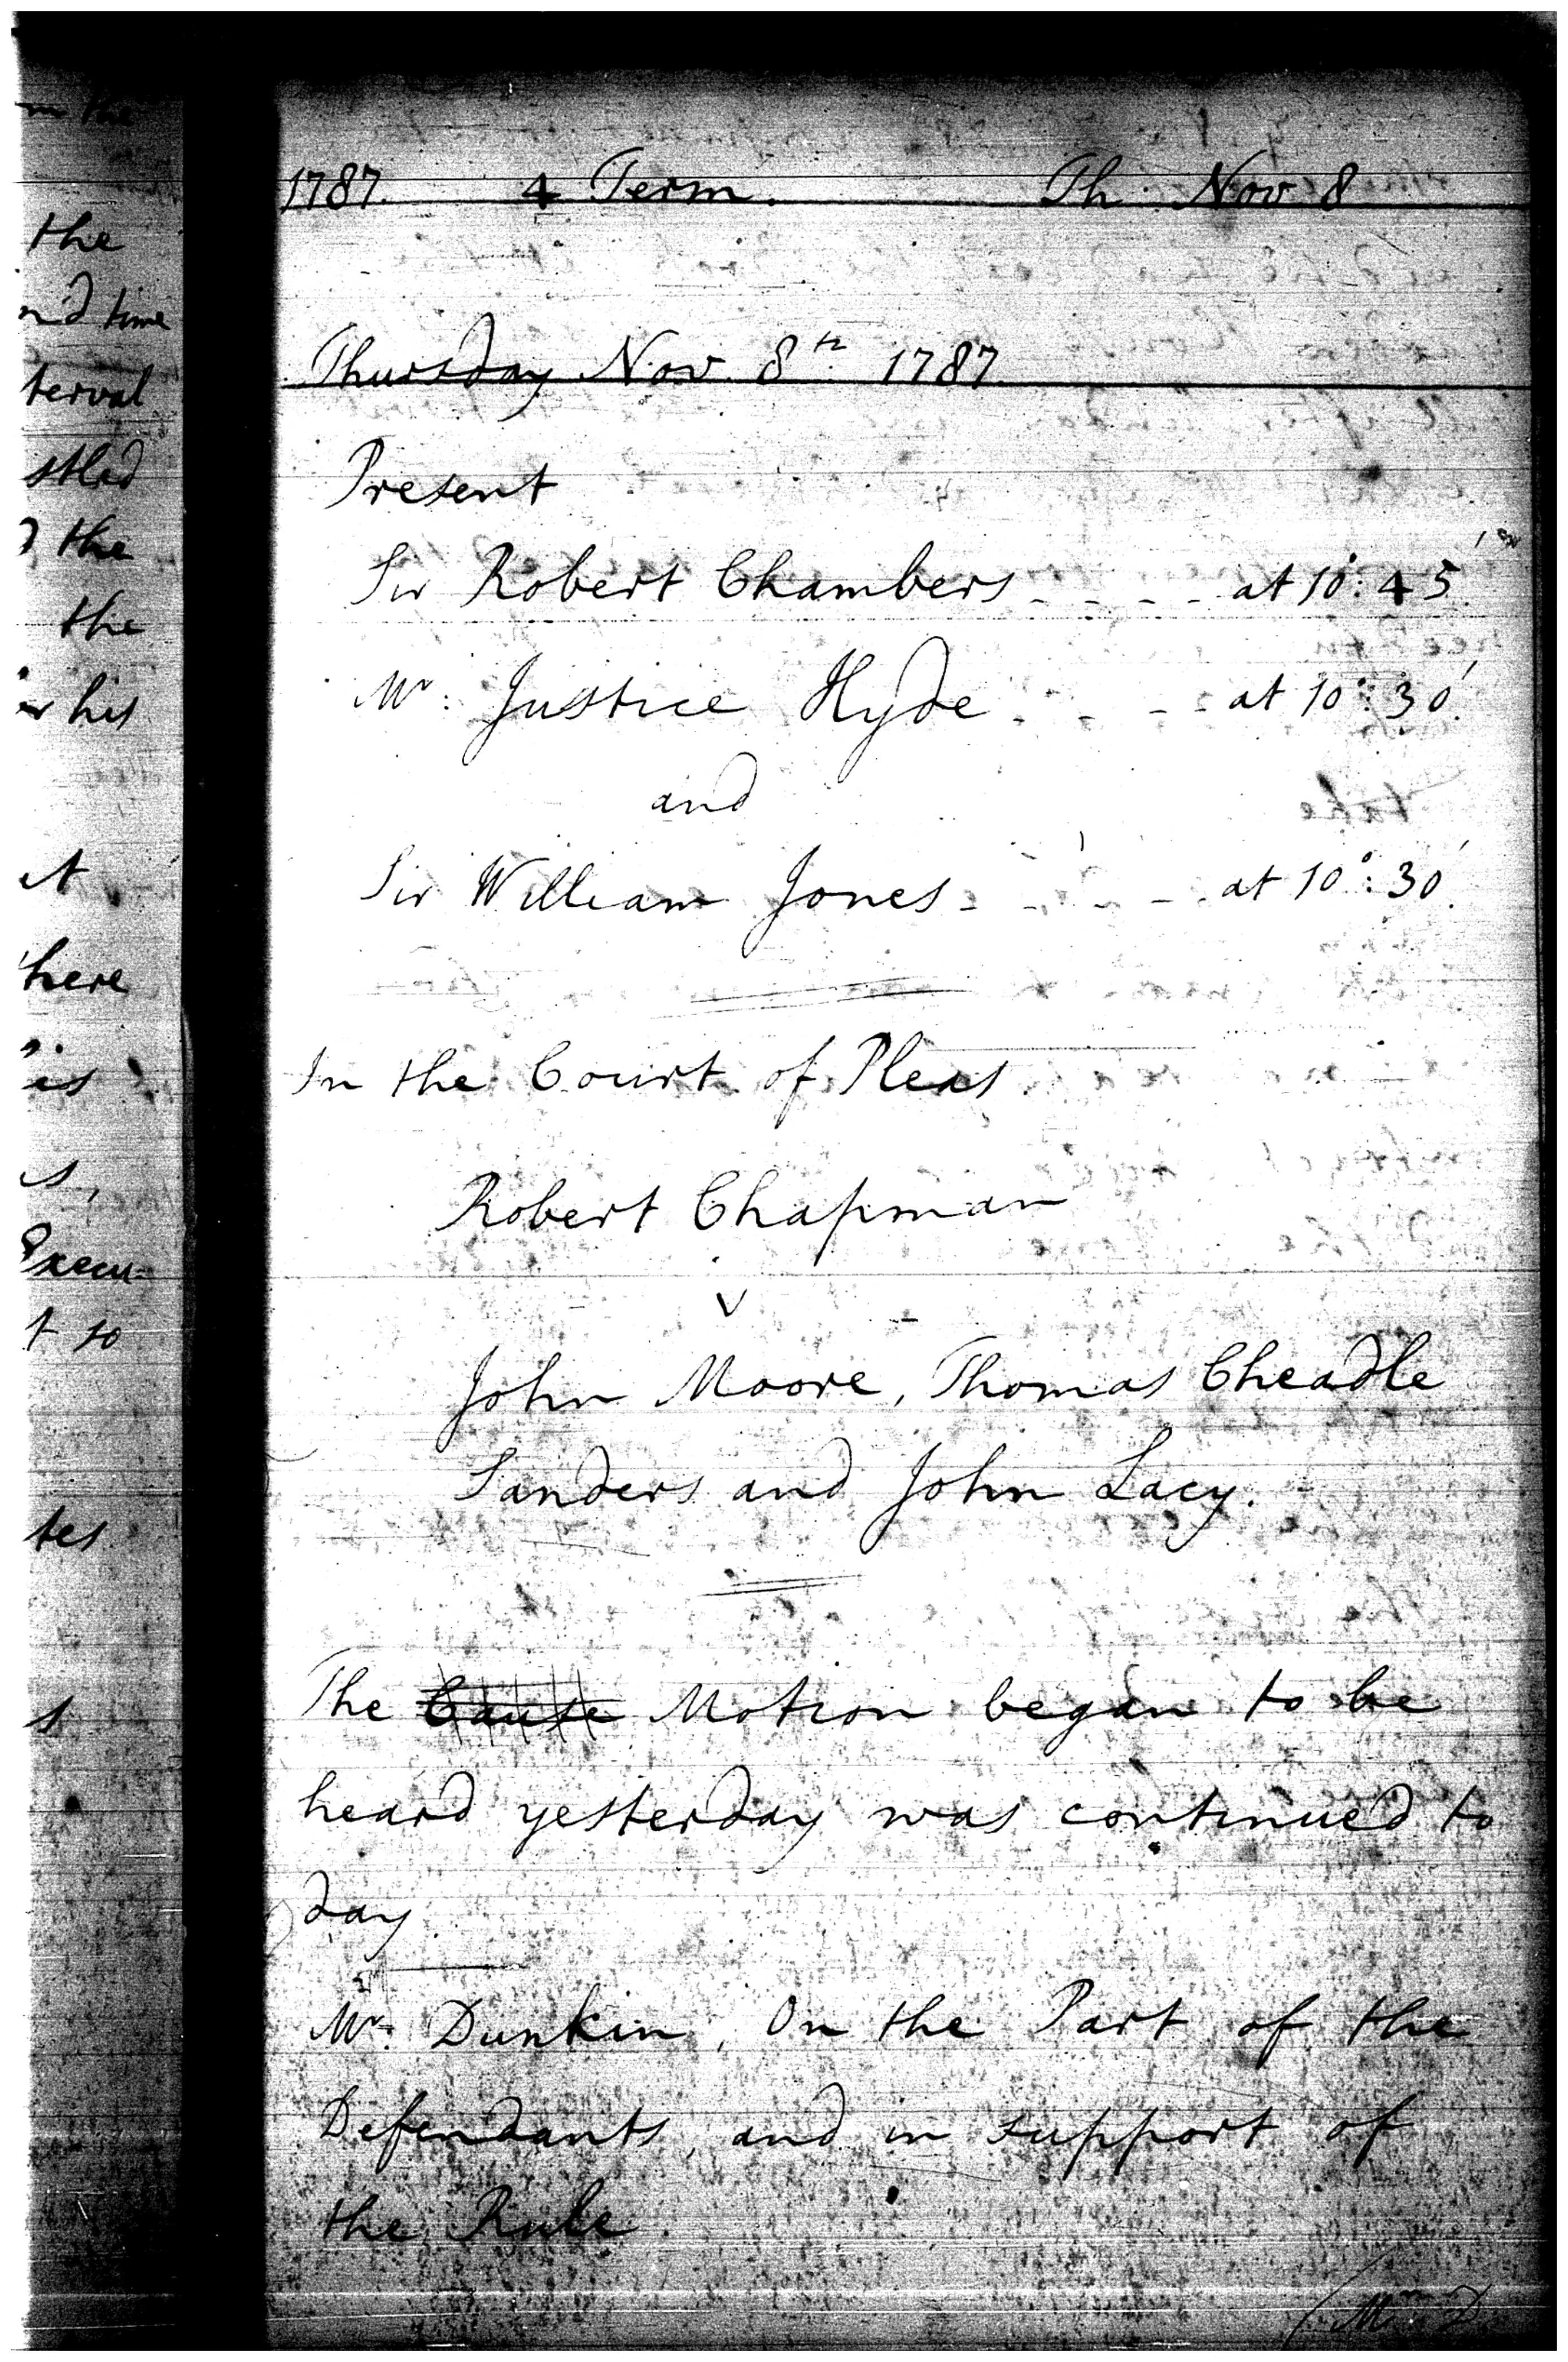 1787. 4 Term. Th Nov 8
Thursday Nov. 8th. 1787.
Present
Sir Robert Chambers - - - - at 10°: 45'.
Mr: Justice Hyde - - - - at 10°: 30'.
and
Sir William Jones - - - - at 10°: 30'.
In the Court of Pleas.
Robert Chapman
v
John Moore, Thomas Cheadle
Sanders and John Lacy.
The Cause Motion began to be
heard yesterday was continued to
day.
Mr. Dunkin, On the Part of the
Defendants, and in support of
the Rule.
the
terval
the
the
his
here
is
Execu-
t so
tes